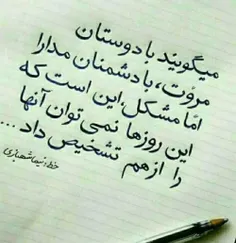 میگویند با دوستان
مروّت، با دشمنان مدارا
امّا مشکل، این است که
این روزها نمی توان آنها
را ازهم تشخیص داد ...
خط: نیما شهبازی